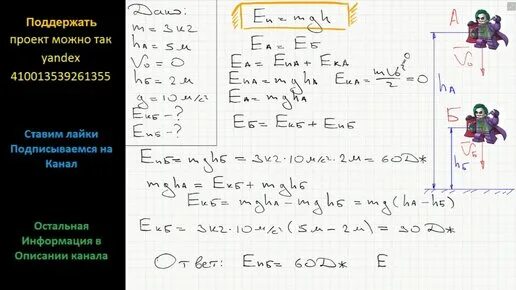 Поддержать
проект можно так
yandex
410013539261355
Ставим лайки
Подписываемся на
Канал
Остальная
Информация в
Описании канала
Дано:
m = 3кг
hА = 5м
V0 = 0
hБ = 2м
g = 10 м/с²
EкБ - ?
EпБ - ?
Eп = mgh
EА = EБ
EА = EпА + EкА
EпА = mghА EкА = mV0²/2 = 0
EА = mghА
EБ = EкБ + EпБ
EпБ = mghБ = 3кг·10м/с²·2м = 60Дж
mghА = EкБ + mghБ
EкБ = mghА - mghБ = mg(hА - hБ)
EкБ = 3кг·10м/с²(5м - 2м) = 90Дж
Ответ: EпБ = 60Дж E
А
V0
hА
Б
VБ
hБ